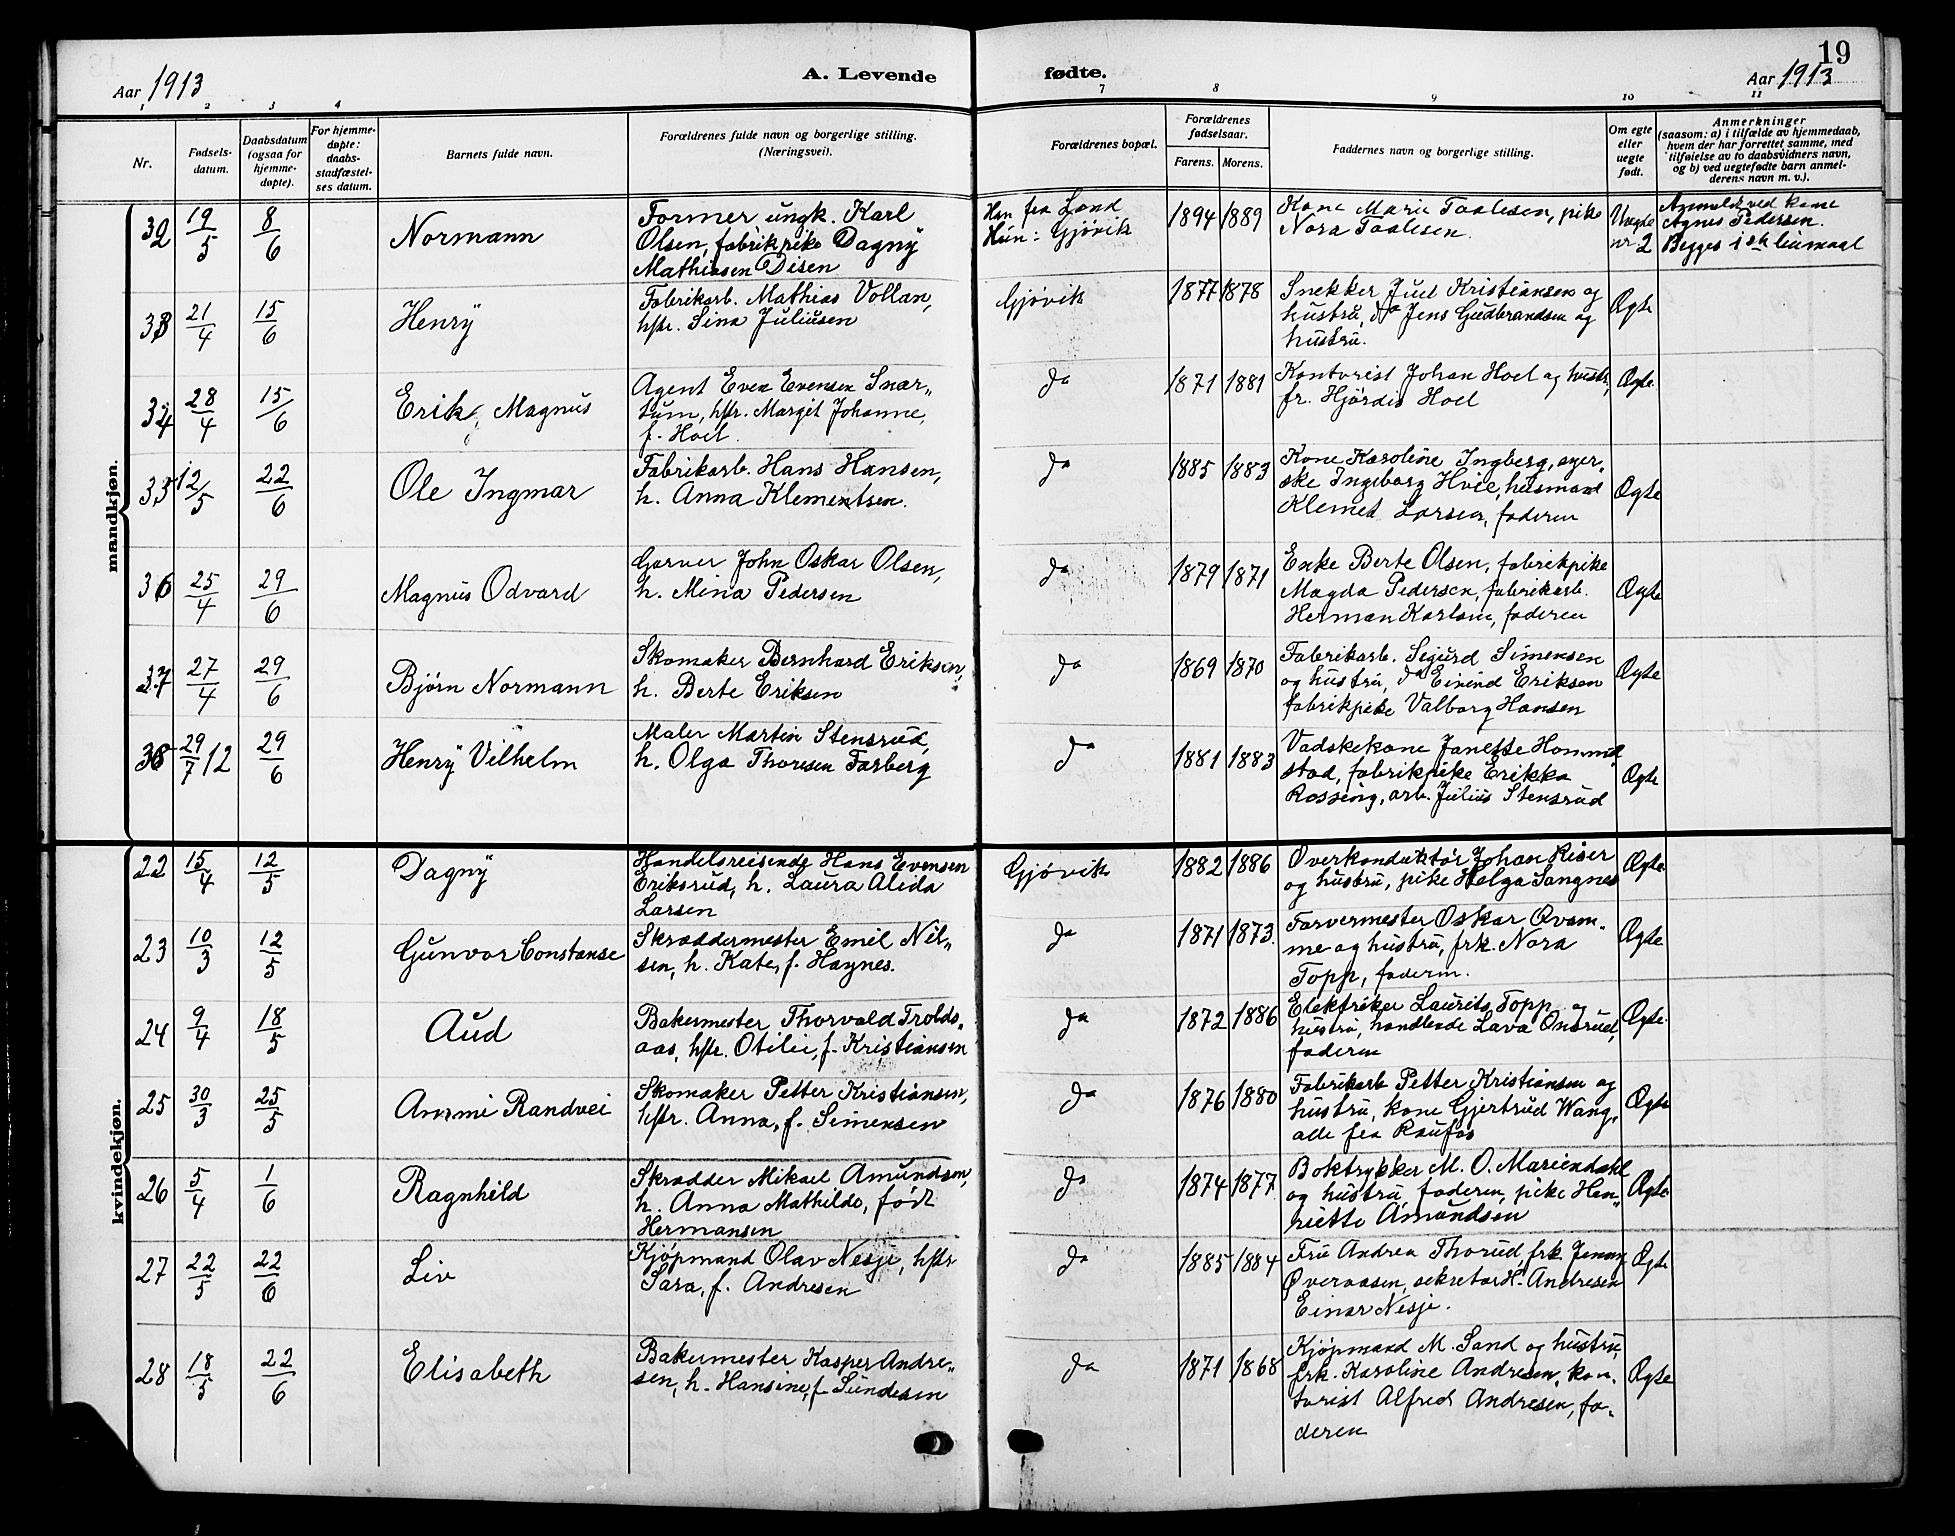 19
Aar 1913
A. Levende
fødte.
Aar 1913
1 2 3 4 7 8 9 10 11
Nr.
Fødsels-
datum.
Daabsdatum
(ogsaa for
hjemme-
døpte).
For hjemme-
døpte:
daabs-
stadfæstel-
ses datum.
Barnets fulde navn.
Forældrenes fulde navn og borgerlige stilling.
(Næringsvei).
Forældrenes bopæl.
Forældrenes
fødselsaar.
Farens. Morens.
Faddernes navn og borgerlige stilling.
Om egte
eller
uegte
født.
Anmerkninger
(saasom: a) i tilfælde av hjemmedaab,
hvem der har forrettet samme, med
tilføielse av to daabsvidners navn,
og b) ved uegtefødte barn anmel-
derens navn m. v.).
mandkjøn.
32 19/5 8/6 Normann
Former ungk. Karl
Olsen, fabrikpike Dagny
Mathiasen Disen
Han fra Land
Hun: Gjøvik
1894 1889
Kone Marie Taalesen, pike
Nora Taalesen.
Uegte
nr 2
Anmeldt ved kone
Agnes Pedersen.
Begges 1ste leiermaal
33 21/4 15/6 Henry
Fabrikarb. Mathias Vollan,
hstr. Sina Juliusen
Gjøvik
1877 1878
Snekker Juel Kristiansen og
hustru, do Jens Gudbrandsen og
hustru.
Ægte
34 28/4 15/6 Erik, Magnus
Agent Even Evensen Snar-
tum, hstr. Margit Johanne,
f. Hoel.
do
1871 1881
Kontorist Johan Hoel og hustr,
fr. Hjördis Hoel
Ægte
35 12/5 22/6 Ole Ingmar
Fabrikarb. Hans Hansen,
h. Anna Klementsen.
do
1885 1883
Kone Karoline Ingberg, syer-
ske Ingeborg Hvie, husmand
Klemet Larsen, faderen
Ægte
36 25/4 29/6 Magnus Odvard
Garver John Oskar Olsen,
h. Mina Pedersen
do
1879 1871
Enke Berte Olsen, fabrikpike
Magda Pedersen, fabrikarb.
Herman Karlsen, faderen
Ægte
37 27/4 29/6 Bjørn Normann
Skomaker Bernhard Eriksen,
h. Berte Eriksen
do
1869 1870
Fabrikarb. Sigurd Simensen
og hustru, do Eivind Eriksen
fabrikpike Valborg Hansen
Ægte
38 29/7 12 29/6 Henry Vilhelm
Maler Martin Stensrud,
h. Olga Thoresen Farberg
do
1881 1883
Vadskekone Janette Hommel
stad, fabrikpike Erikka
Rossing, arb. Julius Stensrud
Ægte
kvindekjøn.
22 15/4 12/5 Dagny
Handelsreisende Hans Evensen
Eriksrud, h. Laura Alida
Larsen
Gjøvik
1882 1886
Overkonduktör Johan Riser
og hustru, pike Helga Sangnes
Ægte
23 10/3 12/5 Gunvor Constanse
Skræddermester Emil Nil-
sen, h. Kate, f. Haynes.
do
1871 1873.
Farvermester Oskar Qvam-
me og hustru, frk. Nora
Topp, faderen.
Ægte
24 9/4 18/5 Aud
Bakermester Thorvald Trolds-
aas, hstr. Otilie, f. Kristiansen
do
1872 1886
Elektriker Laurits Topp og
hustru, handlende Lava Onsrud,
faderen
Ægte
25 30/3 25/5 Ammi Randvei
Skomaker Petter Kristiansen,
hstr. Anna, f. Simensen
do
1876 1880
Fabrikarb Petter Kristiansen og
hustru, kone Gjertrud Wang,
alle fra Raufos
Ægte
26 5/4 1/6 Ragnhild
Skrædder Mikael Amundsen,
h. Anna Mathilde, født
Hermansen
do
1874 1877
Boktrykker M. O. Mariendahl
og hustru, faderen, pike Hen-
riette Amundsen
Ægte
27 22/5 22/6 Liv
Kjøpmand Olav Nesje, hstr
Sara, f. Andresen
do
1885 1884
Fru Andrea Thorud, frk. Jenny
Øveraasen, sekretær H. Andresen
Einar Nesje.
Ægte
28 18/5 22/6 Elisabeth
Bakermester Kasper Andre-
sen, h. Hansine, f. Sundesen
do
1871 1868
Kjøpmand M. Sand og hustru,
frk. Karoline Andresen, kon-
torist Alfred Andresen, fa-
deren
Ægte